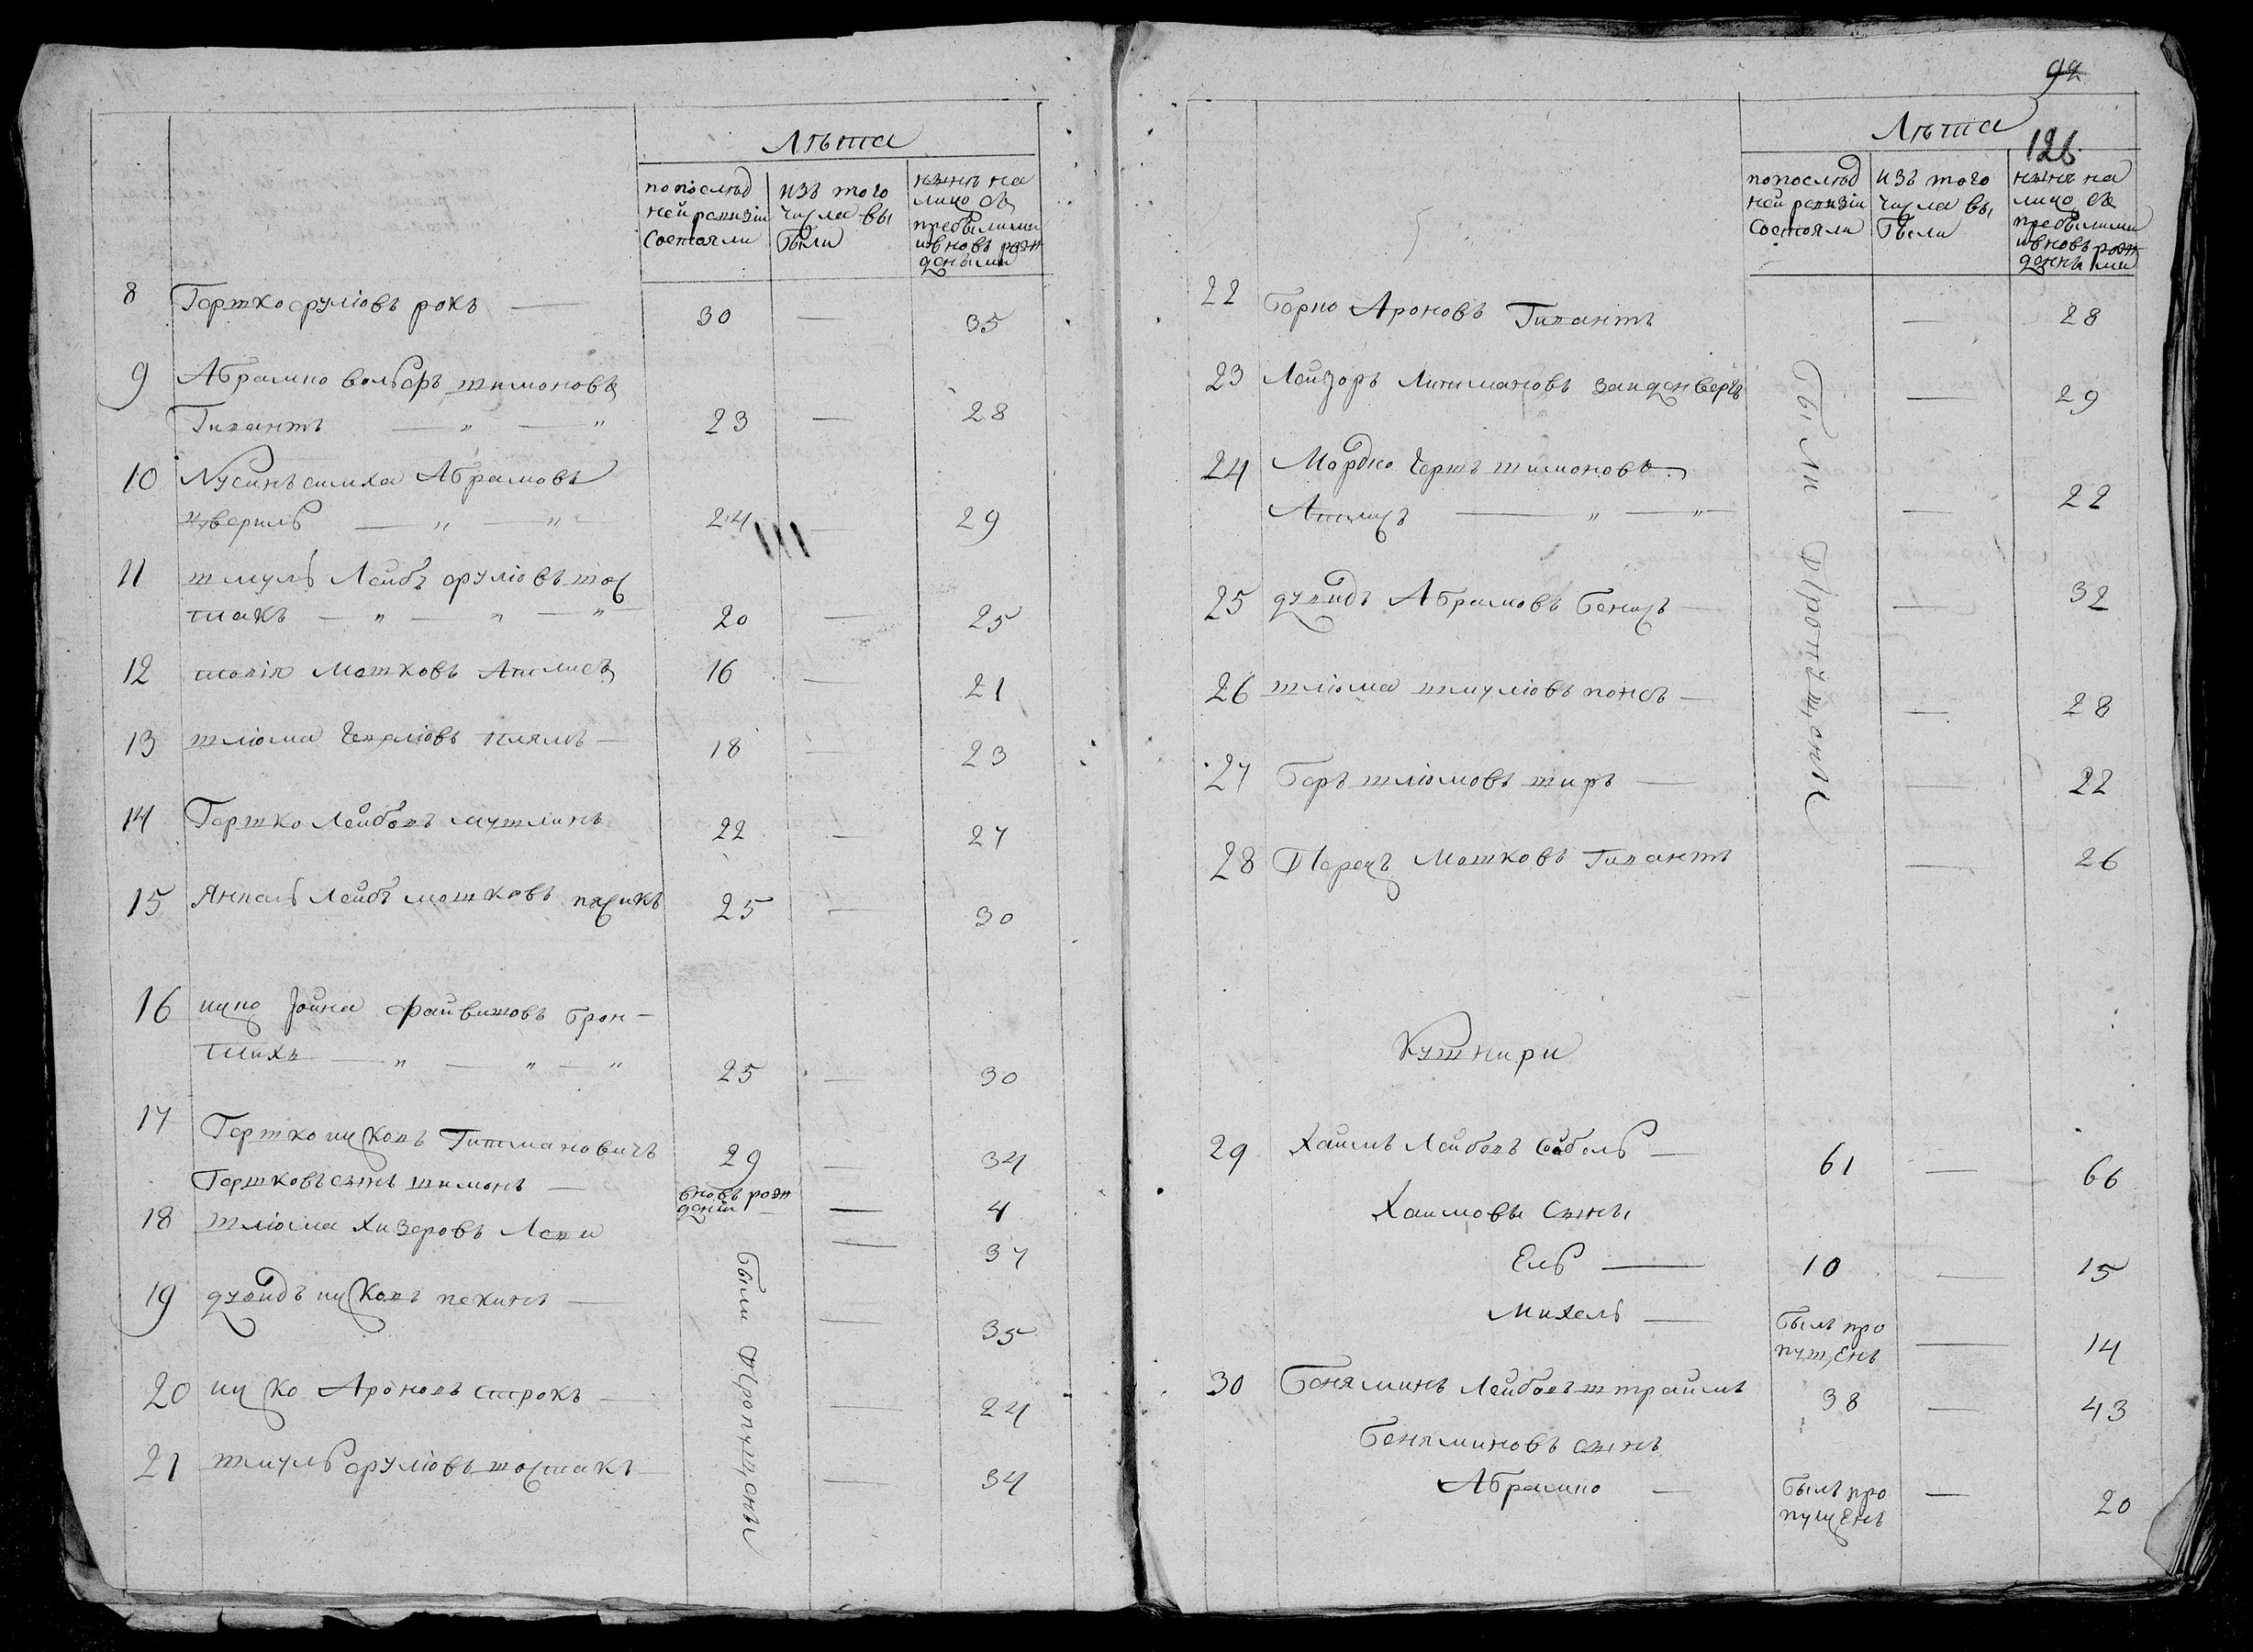 Лѣта
попослѣд
ней ревизіи
состояли
изъ того
числа вы
были
нынѣ на
лицо съ
прибылими
ивновь рож
денными
8 Гершко сруліовъ рокъ — 30 — 35
9 Абрамко вольфъ шимоновъ
Гивантъ — „ — „ 23 — 28
10 Нусинъ симха Абрамовъ
— „ — „ 24 — 29
11 шмуль Лейбъ сруліовъ шос
такъ — „ — „ — „ 20 — 25
12 Мошковъ 16 — 21
13 шліома 18 — 23
14 Гершко Лейбовъ мушлинъ 22 — 27
15 Янкель Лейбъ мошковъ пасикъ 25 — 30
16 ицко Іойна Файвишовъ Брон-
— „ — „ — „ 25 — 30
17 Гершко ицковъ Гитмановичъ 29 — 34
Гершковъ сынъ шимонъ — вновь рож
денъ — 4
18 шліома Хизеровъ Леви — 37
19 дувидъ ицковъ пекинъ — — 35
20 ицко Ароновъ строкъ — — 24
21 шмуль сруліовъ шостакъ — — 34
были пропущены
92
126
Лѣта
попослѣд
ней ревизіи
состояли
изъ того
числа вы
были
нынѣ на
лицо съ
прибылими
ивновь рож
денными
22 Берко Ароновъ Гивантъ — 28
23 Лейзоръ Литмановъ зайденвергъ — 29
24 Мордко Гершъ шимоновъ
— „ — „ — 22
25 дувидъ Абрамовъ — — 32
26 шліома шмуліовъ — — 28
27 Беръ шліомовъ — — 22
28 Перецъ Мошковъ Гивантъ — 26
были пропущены
Кушнири
29 Хаимъ Лейбовъ собель — 61 — 66
Хаимовы сыны
Ель — 10 — 15
Михель — былъ про
пущенъ — 14
30 Беняминъ Лейбовъ штраймъ 38 — 43
Беняминовъ сынъ
Абрамко — былъ про
пущенъ — 20